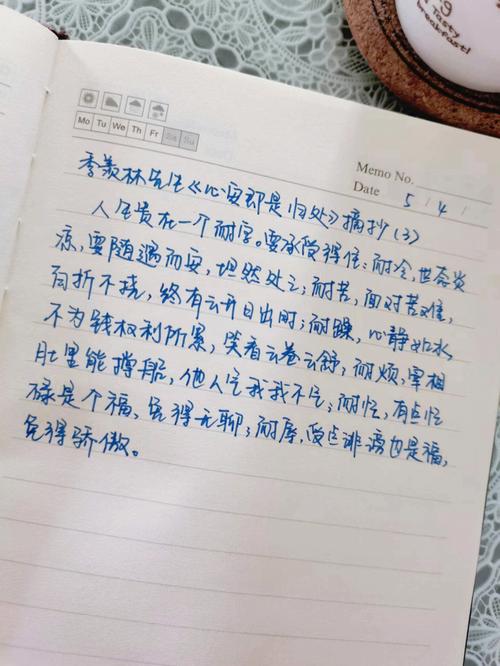 9
Tasty
breakfast!
Mo Tu We Th Fr Sa Su
Memo No.
Date 5 / 4 /
季羡林先生《心安即是归处》摘抄(3)
人生贵在一个耐字。要承受得住:耐冷,世态炎
凉,要随遇而安,坦然处之;耐苦,面对苦难,
百折不挠,终有云开日出时;耐躁,心静如水,
不为钱权利所累,笑看云卷云舒,耐烦,宰相
肚里能撑船,他人气我我不气;耐忙,有点忙
碌是个福,免得无聊;耐辱,受点诽谤也是福,
免得骄傲。